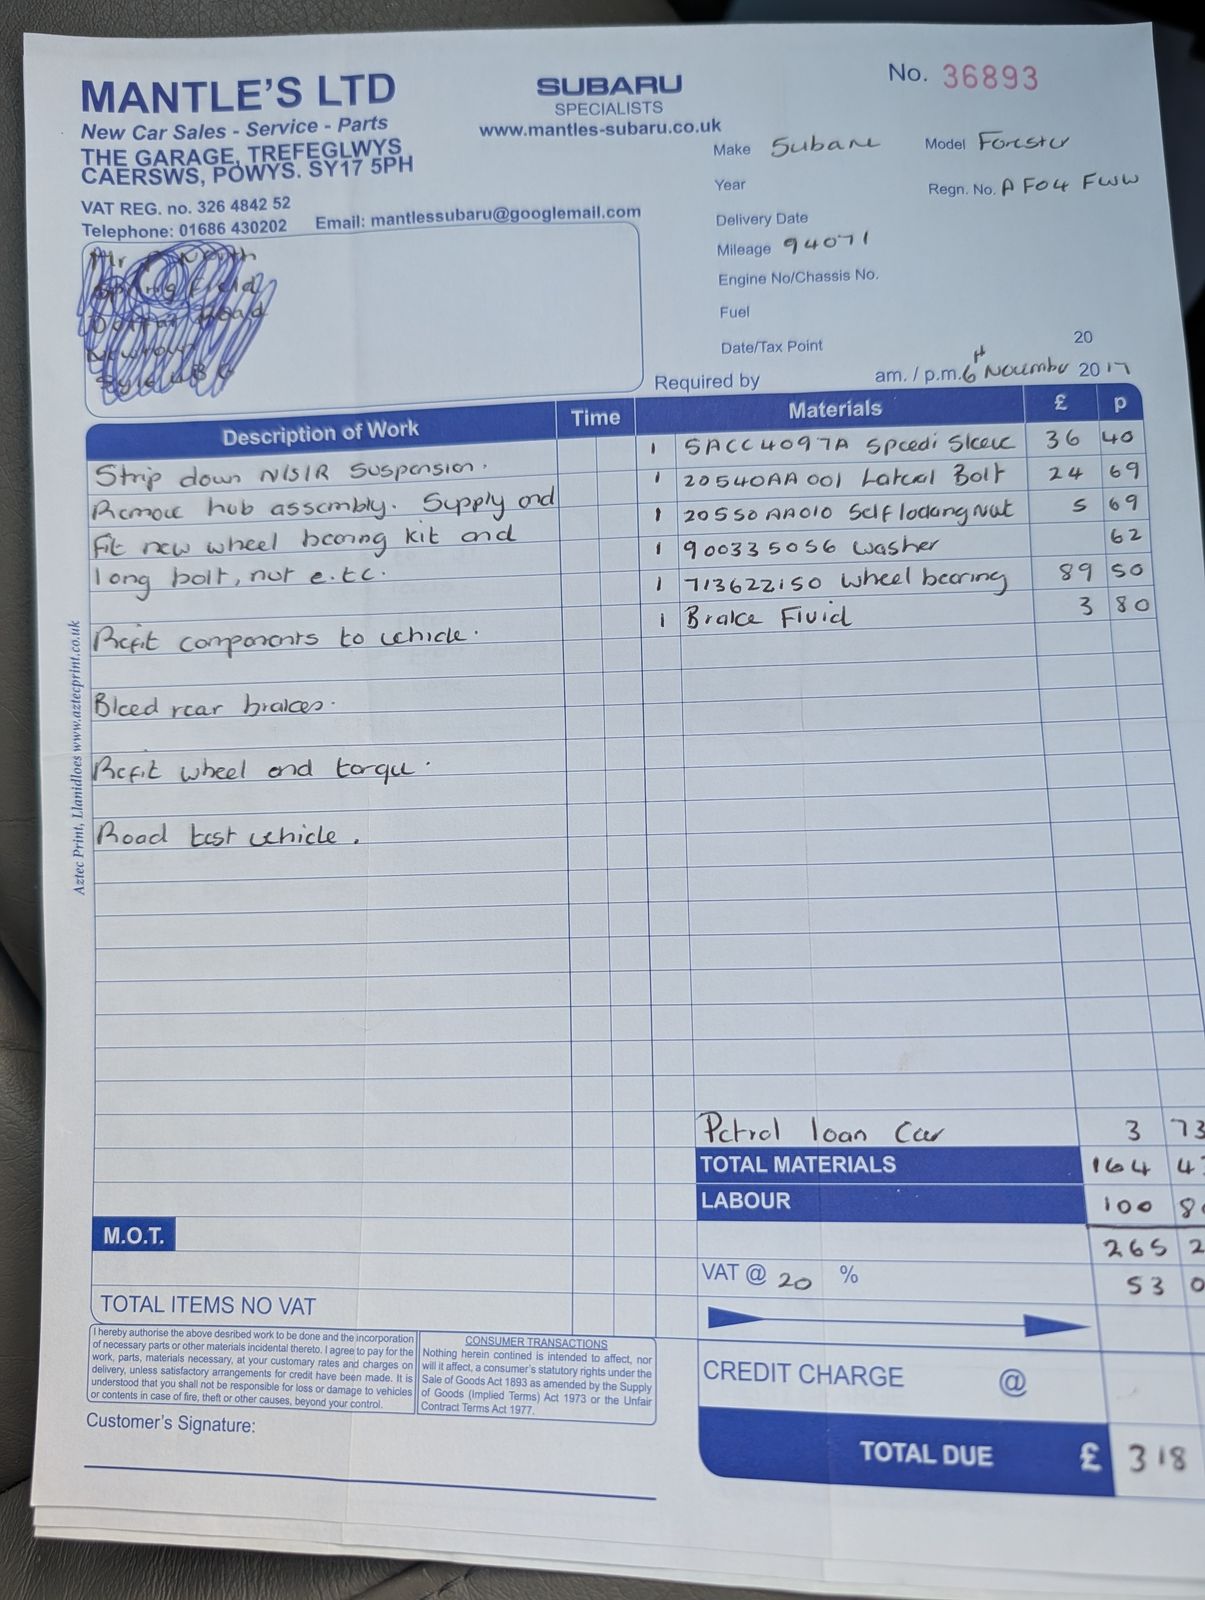 MANTLE'S LTD
New Car Sales - Service - Parts
THE GARAGE, TREFEGLWYS
CAERSWS, POWYS. SY17 5PH
VAT REG. no. 326 4842 52
Telephone: 01686 430202 Email: mantlessubaru@googlemail.com
SUBARU
SPECIALISTS
www.mantles-subaru.co.uk
No. 36893
Make Subaru Model Forester
Year Regn. No. AF04 FWW
Delivery Date
Mileage 94071
Engine No/Chassis No.
Fuel
Date/Tax Point 20
Required by am. / p.m. 6th November 2017
Description of Work Time Materials £ p
1 SACC4097A Speedi Sleeve 36 40
Strip down N/S/R suspension.
1 20540AA001 Lateral Bolt 24 69
Remove hub assembly. Supply and
1 20550AA010 Self locking Nut 5 69
fit new wheel bearing kit and
1 900335056 washer 62
long bolt, nut e.t.c.
1 713622150 wheel bearing 89 50
1 Brake Fluid 3 80
Refit components to vehicle.
Bleed rear brakes.
Refit wheel and torque.
Road test vehicle.
Aztec Print, Llanidloes www.aztecprint.co.uk
Petrol loan car 3 73
TOTAL MATERIALS 164 4
LABOUR 100 8
M.O.T.
265 2
VAT @ 20 % 53 0
TOTAL ITEMS NO VAT
I hereby authorise the above desribed work to be done and the incorporation
of necessary parts or other materials incidental thereto. I agree to pay for the
work, parts, materials necessary, at your customary rates and charges on
delivery, unless satisfactory arrangements for credit have been made. It is
understood that you shall not be responsible for loss or damage to vehicles
or contents in case of fire, theft or other causes, beyond your control.
CONSUMER TRANSACTIONS
Nothing herein contined is intended to affect, nor
will it affect, a consumer's statutory rights under the
Sale of Goods Act 1893 as amended by the Supply
of Goods (Implied Terms) Act 1973 or the Unfair
Contract Terms Act 1977.
CREDIT CHARGE @
Customer's Signature:
TOTAL DUE £ 318